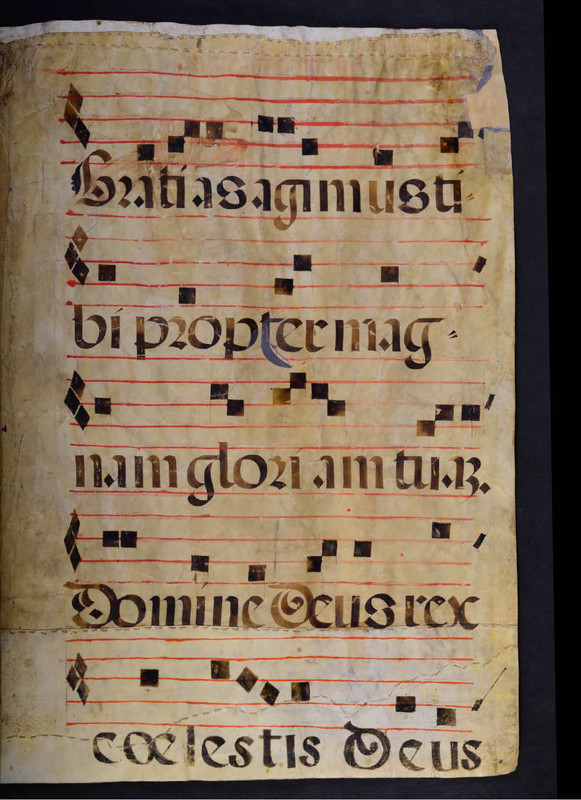 Gratias agimus ti
bi propter mag-
nam gloriam tuā.
Domine Deus rex
cœlestis Deus